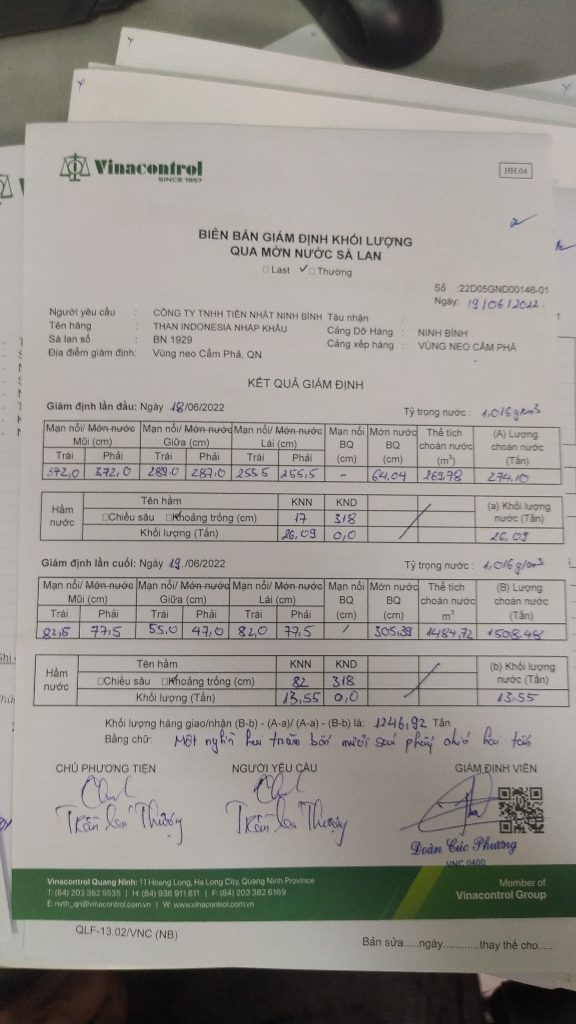 Vinacontrol
SINCE 1957
HH.04
BIÊN BẢN GIÁM ĐỊNH KHỐI LƯỢNG
QUA MỚN NƯỚC SÀ LAN
□ Last ✓□ Thường
Số :22D05GND00146-01
Ngày: 19/06/2022.
Người yêu cầu : CÔNG TY TNHH TIẾN NHẤT NINH BÌNH Tàu nhận :
Tên hàng : THAN INDONESIA NHẬP KHẨU Cảng Dỡ Hàng : NINH BÌNH
Sà lan số : BN 1929 Cảng xếp hàng : VÙNG NEO CẨM PHẢ
Địa điểm giám định: Vùng neo Cẩm Phả, QN
KẾT QUẢ GIÁM ĐỊNH
Giám định lần đầu: Ngày 18/06/2022 Tỷ trọng nước : 1,016g/cm³
Mạn nổi/ Mớn nước Mũi (cm) Mạn nổi/ Mớn nước Giữa (cm) Mạn nổi/ Mớn nước Lái (cm) Mạn nổi BQ (cm) Mớn nước BQ (cm) Thể tích choán nước (m³) (A) Lượng choán nước (Tấn)
Trái Phải Trái Phải Trái Phải
372,0 372,0 289.0 287.0 255.5 255,5 - 64,04 269.78 274,10
Hầm nước Tên hầm KNN KND (a) Khối lượng nước (Tấn)
□Chiều sâu □Khoảng trống (cm) 17 318
Khối lượng (Tấn) 26,09 0,0 26,09
Giám định lần cuối: Ngày 19./06/2022 Tỷ trọng nước : 1,016g/cm³
Mạn nổi/ Mớn nước Mũi (cm) Mạn nổi/ Mớn nước Giữa (cm) Mạn nổi/ Mớn nước Lái (cm) Mạn nổi BQ (cm) Mớn nước BQ (cm) Thể tích choán nước m³ (B) Lượng choán nước (Tấn)
Trái Phải Trái Phải Trái Phải
82,5 77,5 55,0 47,0 82,0 77,5 / 305,39 1484,72 1508,48
Hầm nước Tên hầm KNN KND (b) Khối lượng nước (Tấn)
□Chiều sâu □Khoảng trống (cm) 82 318
Khối lượng (Tấn) 13,55 0,0 13,55
Khối lượng hàng giao/nhận (B-b) - (A-a)/ (A-a) - (B-b) là: 1246,92 Tấn
Bằng chữ: Một nghìn hai trăm bốn mươi sáu phẩy chín hai tấn
CHỦ PHƯƠNG TIỆN NGƯỜI YÊU CẦU GIÁM ĐỊNH VIÊN
Trần Thương Trần Thương
Đoàn Cúc Phương
VNC 0400
Vinacontrol Quang Ninh: 11 Hoang Long, Ha Long City, Quang Ninh Province
T: (84) 203 382 5535 | H: (84) 936 911 811 | F: (84) 203 382 6169
E: nvth_qn@vinacontrol.com.vn | W: www.vinacontrol.com.vn
Member of
Vinacontrol Group
QLF-13.02/VNC (NB)
Bản sửa.....ngày...........thay thế cho.....